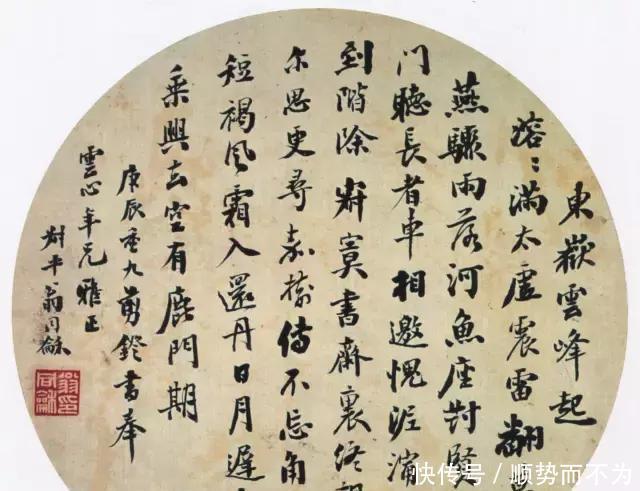 東嶽雲峰起
溶〻滿太虛震雷翻
燕驟雨落河魚座對賢
門聽長者車相邀愧泥濘
到階除寂寞書齋裏終
尔思更尋嘉樹傳不忘角
短褐風霜入還丹日月遲
乘興去空有鹿門期
庚辰九剪鐙書奉
雲心年兄雅正
叔平翁同龢
翁同龢印
快传号 / 顺势而不为